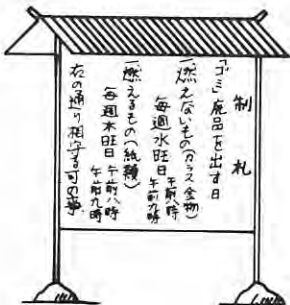 制札
「ゴミ」廃品を出す日
一、燃えないもの(ガラス金物)
毎週水旺日 午前八時 午前九時
一、燃えるもの(紙類)
毎週木旺日 午前八時 午前九時
右の通り相守る可の事